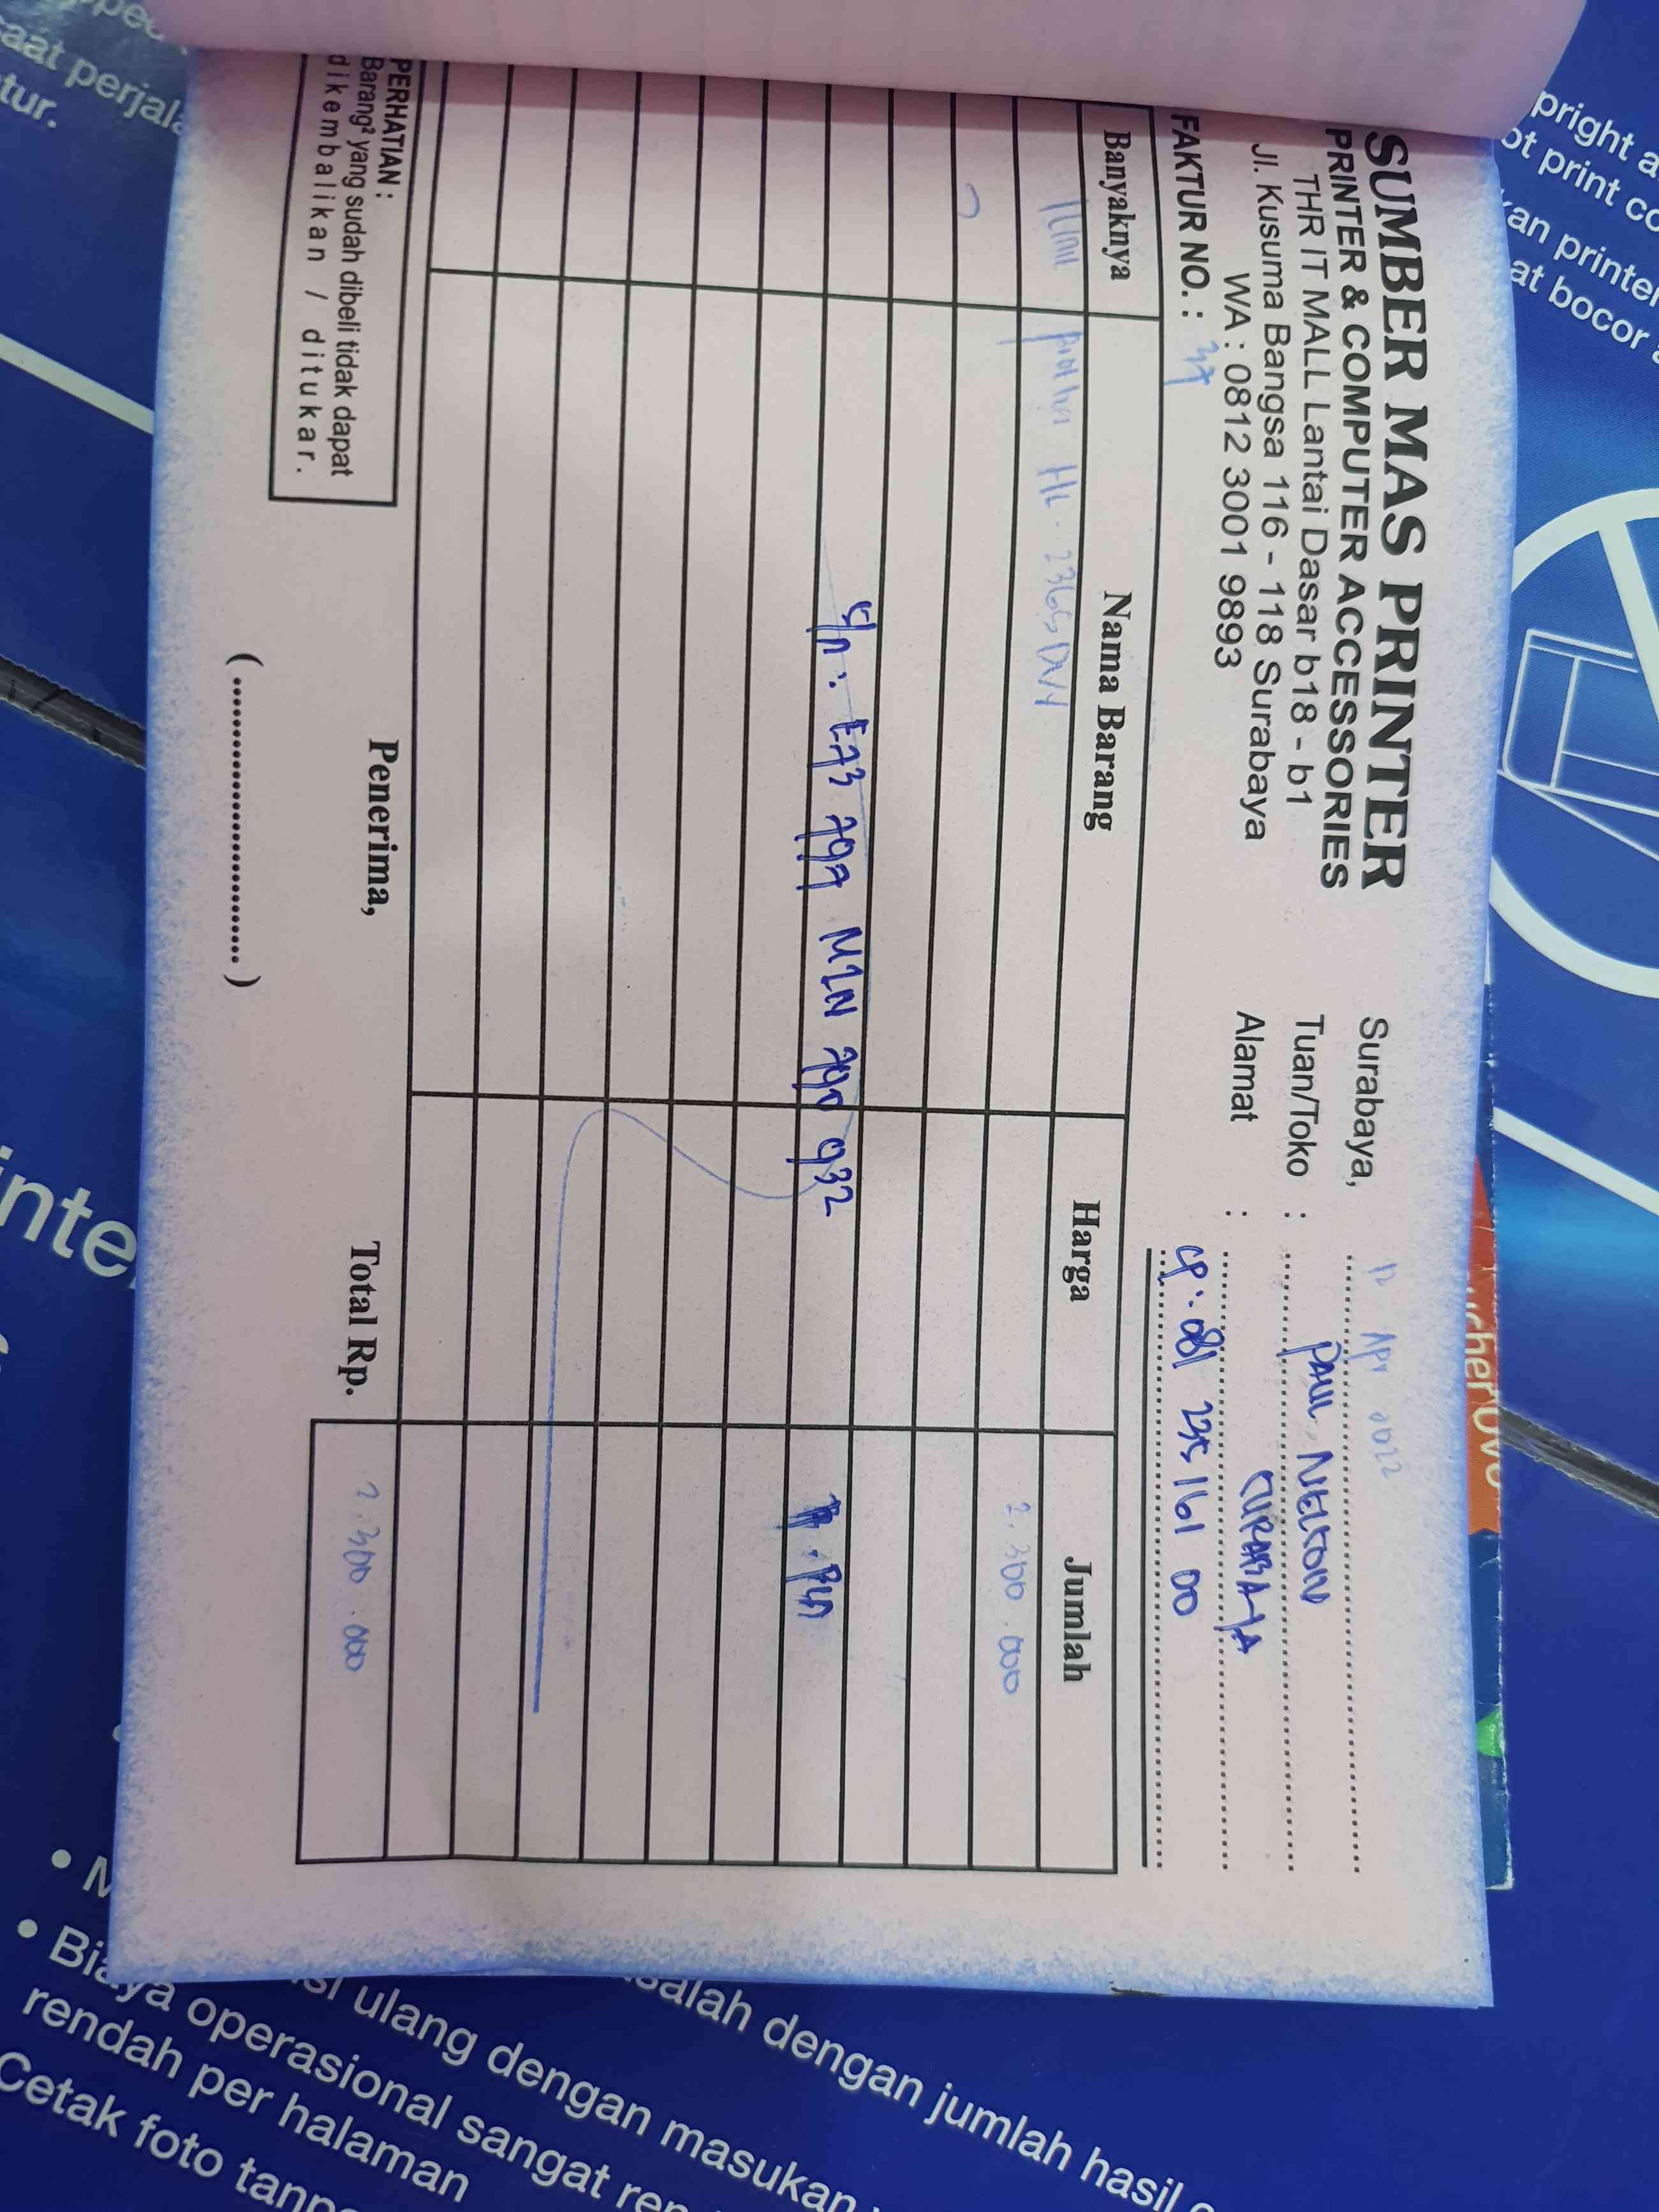 SUMBER MAS PRINTER
PRINTER & COMPUTER ACCESSORIES
THR IT MALL Lantai Dasar b18 - b1
Jl. Kusuma Bangsa 116 - 118 Surabaya
WA : 0812 3001 9893
FAKTUR NO. : 37
Surabaya, Apr 2022
Tuan/Toko : PAUL NELSON
Alamat : SURABAYA
CP : 081 235 161 00
Banyaknya Nama Barang Harga Jumlah
HL. 2365DW 2.300.000
S/n : E73 799 M2N 790 932
PERHATIAN :
Barang² yang sudah dibeli tidak dapat
dikembalikan / ditukar.
Penerima,
(..............................)
Total Rp. 2.300.000
saat perjala
tur.
pright a
ot print co
kan printer
at bocor
inte
salah dengan jumlah hasil
si ulang dengan masukan
• Biaya operasional sangat ren
rendah per halaman
Cetak foto tanp